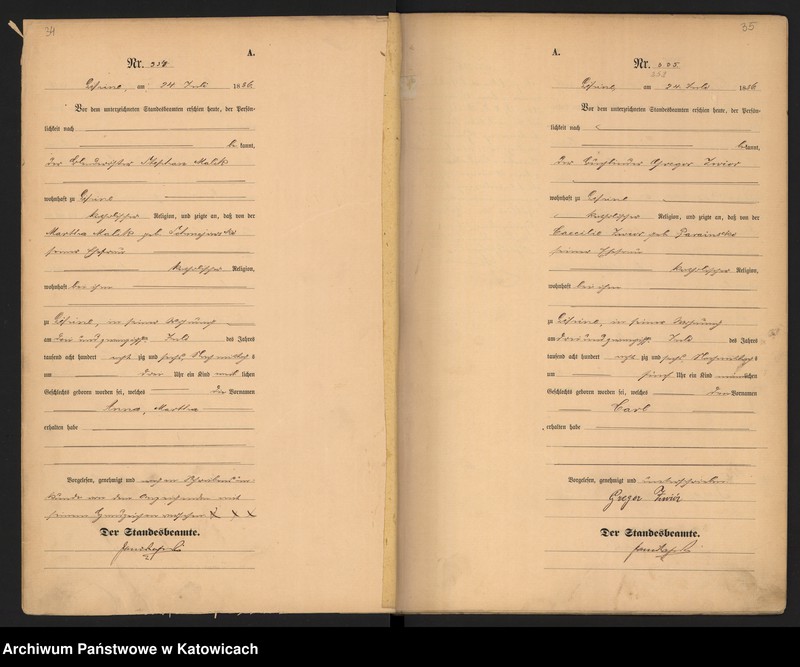 34
A.
Nr. 354
am 24 Juli 1886
Vor dem unterzeichneten Standesbeamten erschien heute, der Persön-
lichkeit nach
be kannt,
der Stephan Malik
wohnhaft zu
katholischer Religion, und zeigte an, daß von der
Martha Malik geb
seiner Ehefrau
katholischer Religion,
wohnhaft bei ihm
zu , in seiner Wohnung
am drei und zwanzigsten Juli des Jahres
tausend acht hundert acht zig und sechs Nachmittag s
um drei Uhr ein Kind weib lichen
Geschlechts geboren worden sei, welches die Vornamen
Anna, Martha
erhalten habe
Vorgelesen, genehmigt und wegen Schreibensun-
kunde von dem Anzeigenden mit
seinem Handzeichen versehen X X X
Der Standesbeamte.
35
A.
Nr. 355
am 24. Juli 1886
Vor dem unterzeichneten Standesbeamten erschien heute, der Persön-
lichkeit nach
be kannt,
der Gregor Zwiór
wohnhaft zu
katholischer Religion, und zeigte an, daß von der
Caecilie geb
seiner Ehefrau
katholischer Religion,
wohnhaft bei ihm
zu , in seiner Wohnung
am drei und zwanzigsten Juli des Jahres
tausend acht hundert acht zig und sechs Nachmittag s
um fünf Uhr ein Kind männ lichen
Geschlechts geboren worden sei, welches den Vornamen
Carl
erhalten habe
Vorgelesen, genehmigt und unterschrieben
Gregor Zwiór
Der Standesbeamte.
Archiwum Państwowe w Katowicach